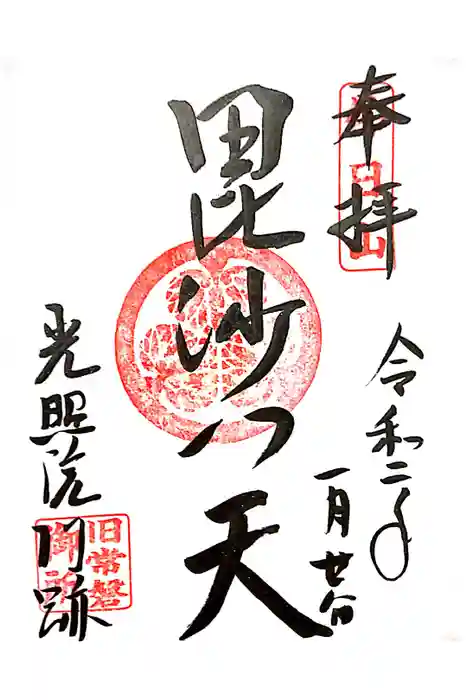 奉拝
令和二年
一月廿八日
毘沙門天
光照院門跡
旧常磐
御所